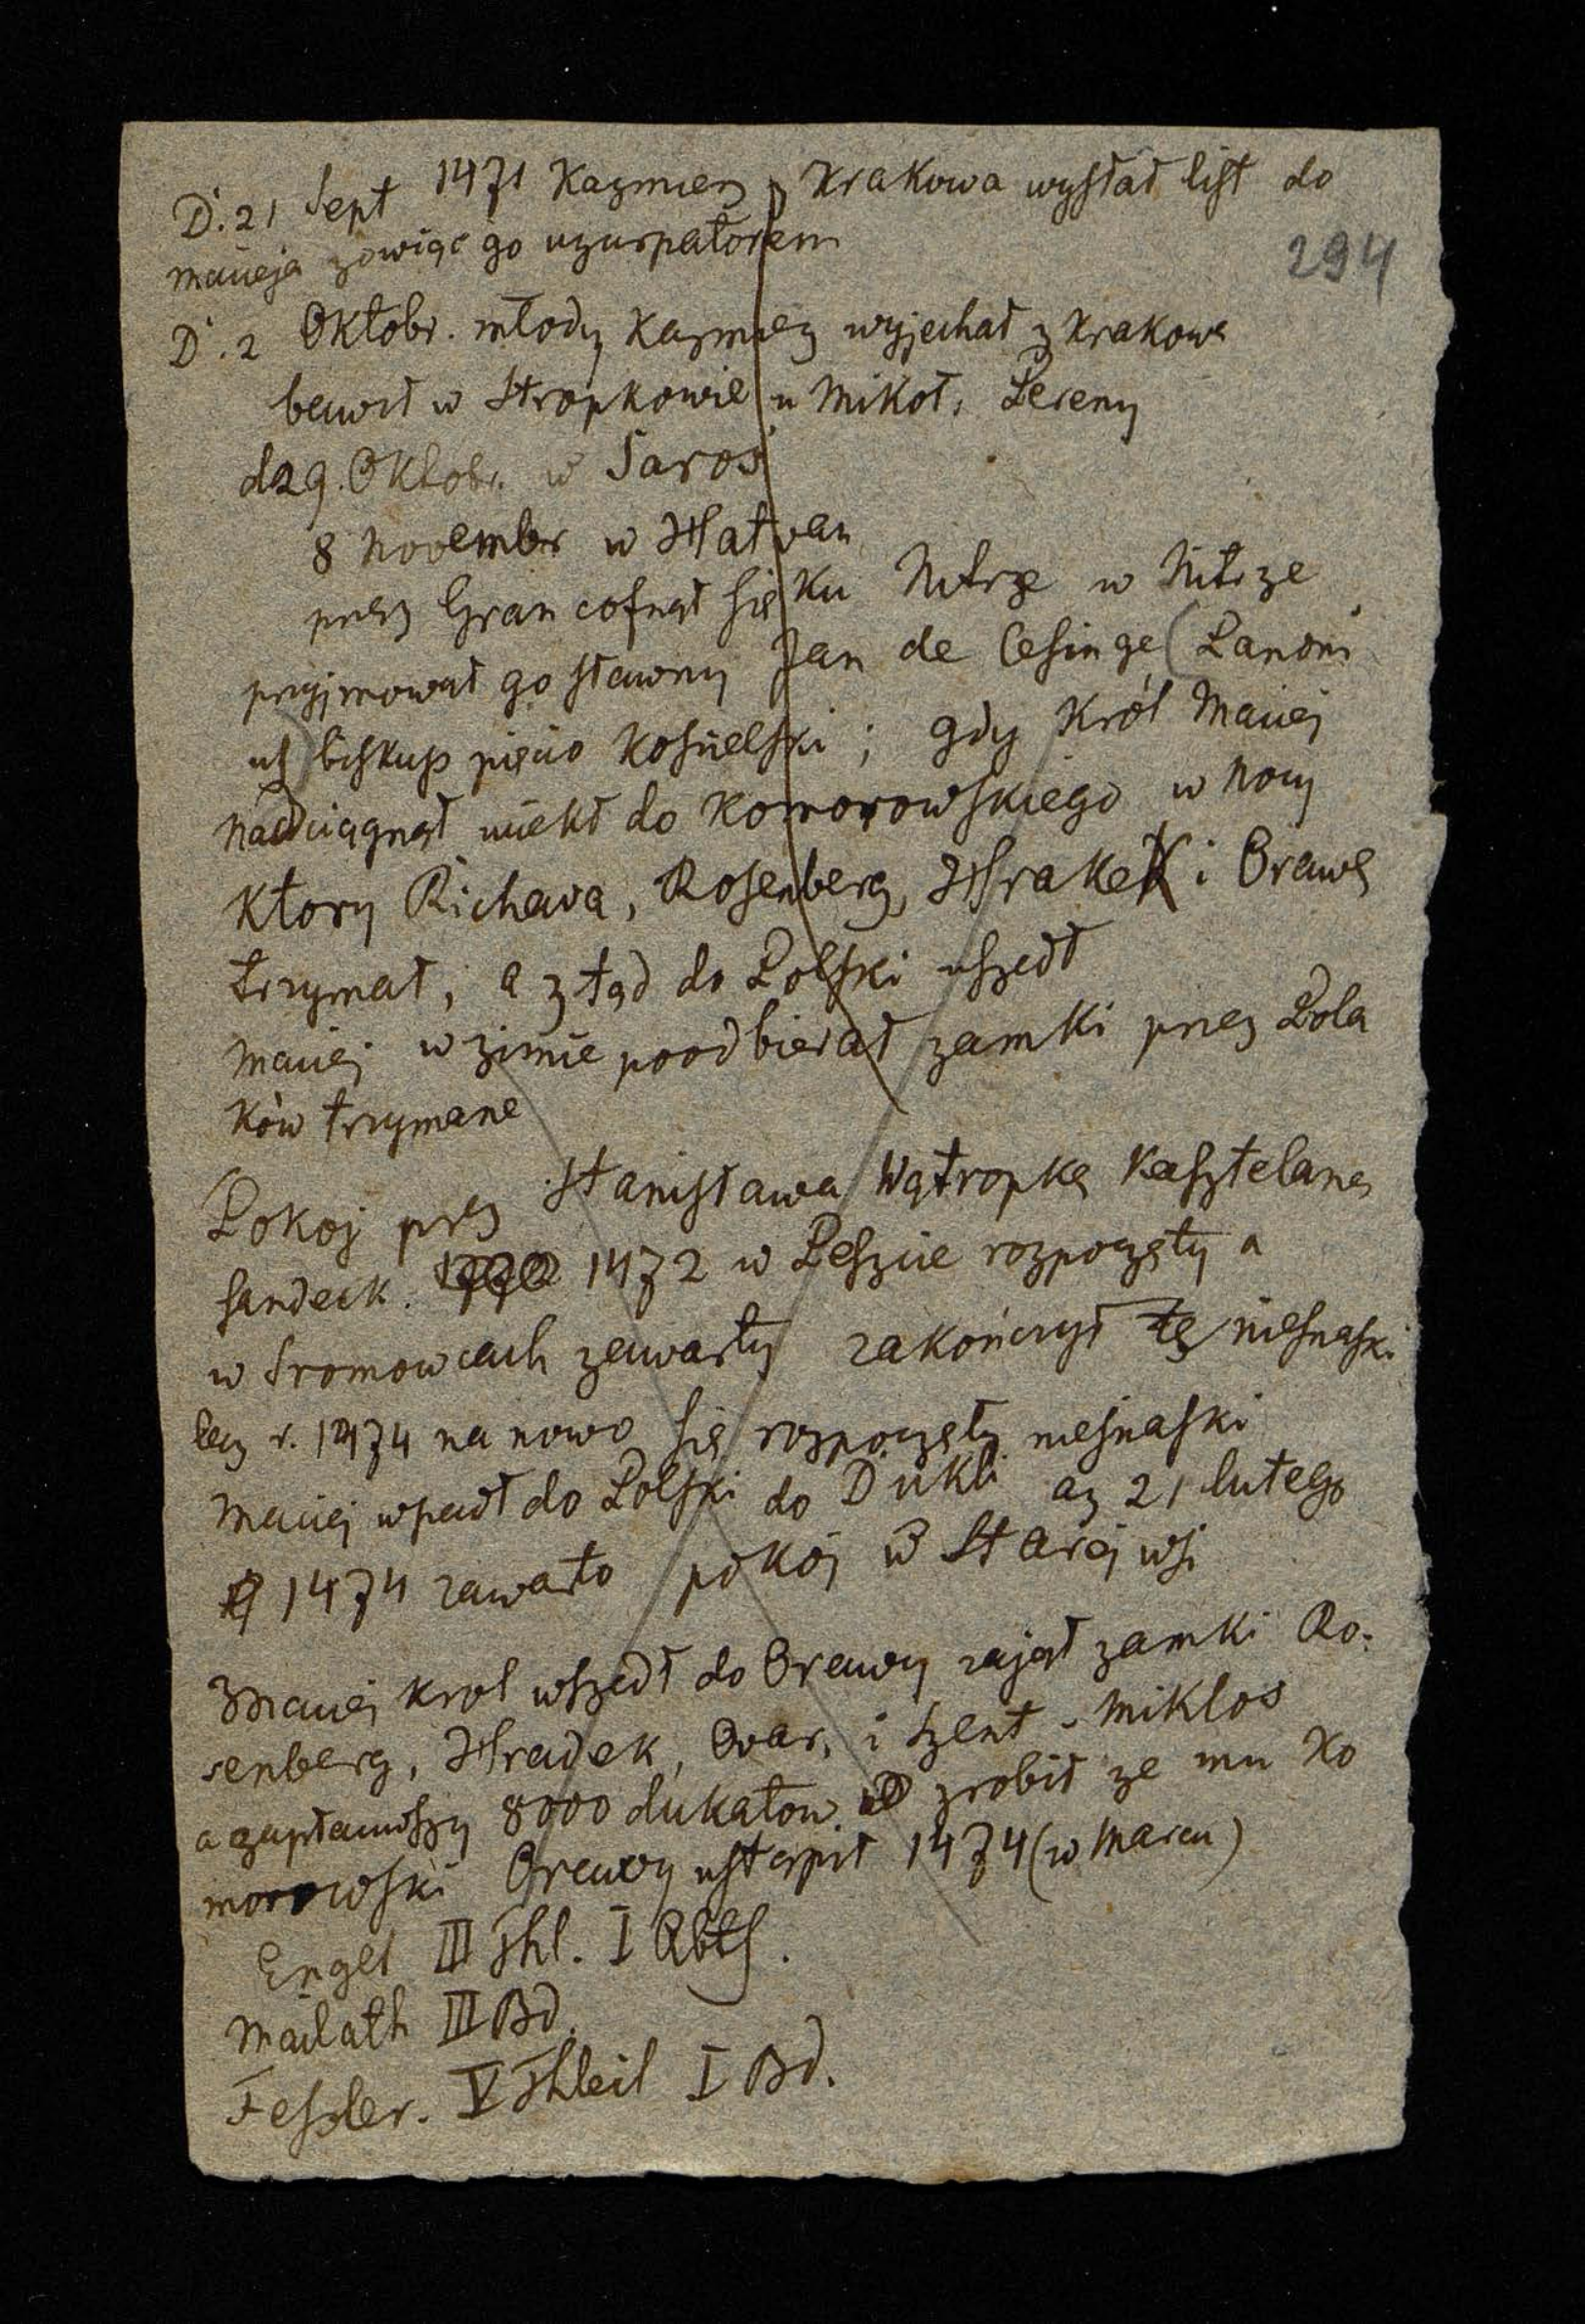 D. 21 Sept 1471 Kazmierz z Krakowa wysłał list do
Macieja zowiąc go uzurpatorem
294
D. 2 Oktobr. młody Kazmierz wyjechał z Krakowa
bawił w Stropkowie u Mikoł. Pereny
d 29. Oktobr. w Saros
8 November w Hatvan
przez Gran cofnął się ku Nitrze w Nitrze
przyjmował go sławny Jan de Cesinge (Panoni
us) biskup pięcio kościelski; gdy Król Maciej
nadciągnął uciekł do Komorowskiego w nocy
Ktory Richava, Rosenberg, Hrakek i Orawę
trzymał, a z tąd do Polski uszedł
Maciej w zimie poodbierał zamki przez Pola
ków trzymane
Pokoj przez Stanisława Wątropkę Kasztelana
sandeck. 1472 w Peszcie rozpoczęty a
w Sromowcach zawarty zakończył tę niesnaski
lecz r. 1474 na nowo się rozpoczęły niesnaski
Maciej wpadł do Polski do Dukli az 21 lutego
1474 zawarto pokój w Starej wsi
Maciej Krol wszedł do Orawy zajął zamki Ro-
senberg, Hradek, Ovar, i Szent-Miklos
a zapłaciwszy 8000 dukatow zrobił ze mu Ko
morowski Orawy ustąpił 1474 (w Marcu)
Engel III Thl. I Abth.
Mailath III Bd.
Feszler. V Theil I Bd.